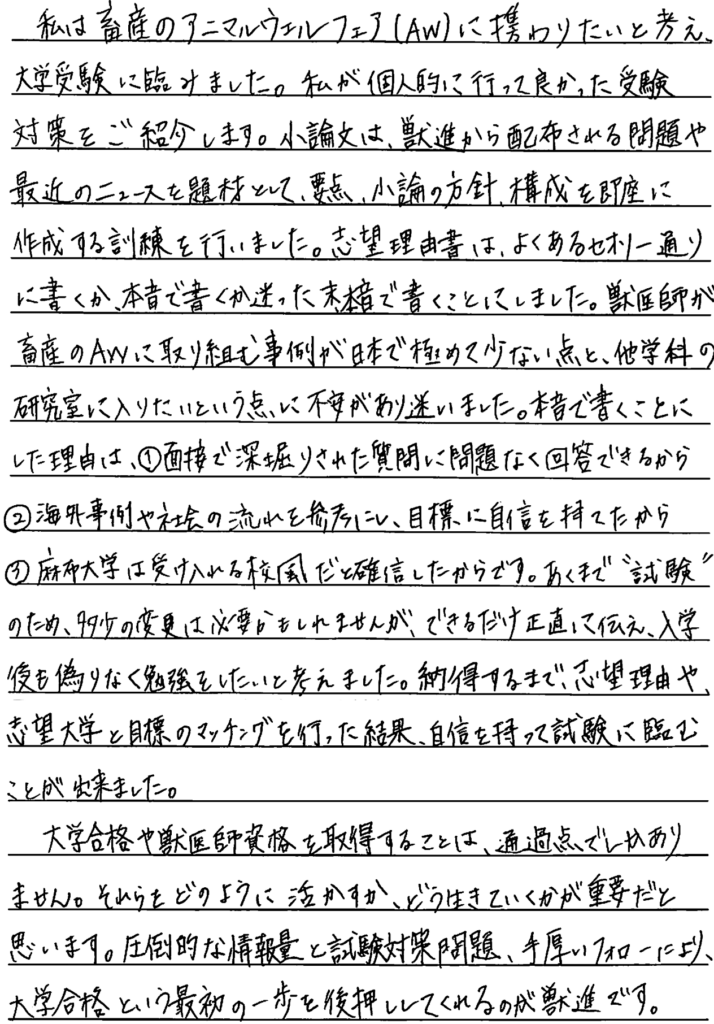 私は畜産のアニマルウェルフェア(AW)に携わりたいと考え、
大学受験に臨みました。私が個人的に行って良かった受験
対策をご紹介します。小論文は、獣進から配布される問題や
最近のニュースを題材として、要点、小論の方針、構成を即座に
作成する訓練を行いました。志望理由書は、よくあるセオリー通り
に書くか、本音で書くか迷った末、本音で書くことにしました。獣医師が
畜産のAWに取り組む事例が日本で極めて少ない点と、他学科の
研究室に入りたいという点に不安があり迷いました。本音で書くことに
した理由は、①面接で深堀りされた質問に問題なく回答できるから
②海外事例や社会の流れを参考にし、目標に自信を持てたから
③麻布大学は受け入れる校風だと確信したからです。あくまで“試験”
のため、多少の変更は必要かもしれませんが、できるだけ正直に伝え、入学
後も偽りなく勉強をしたいと考えました。納得するまで、志望理由や、
志望大学と目標のマッチングを行った結果、自信を持って試験に臨む
ことが出来ました。
大学合格や獣医師資格を取得することは、通過点でしかあり
ません。それらをどのように活かすか、どう生きていくかが重要だと
思います。圧倒的な情報量と試験対策問題、手厚いフォローにより、
大学合格という最初の一歩を後押ししてくれるのが獣進です。